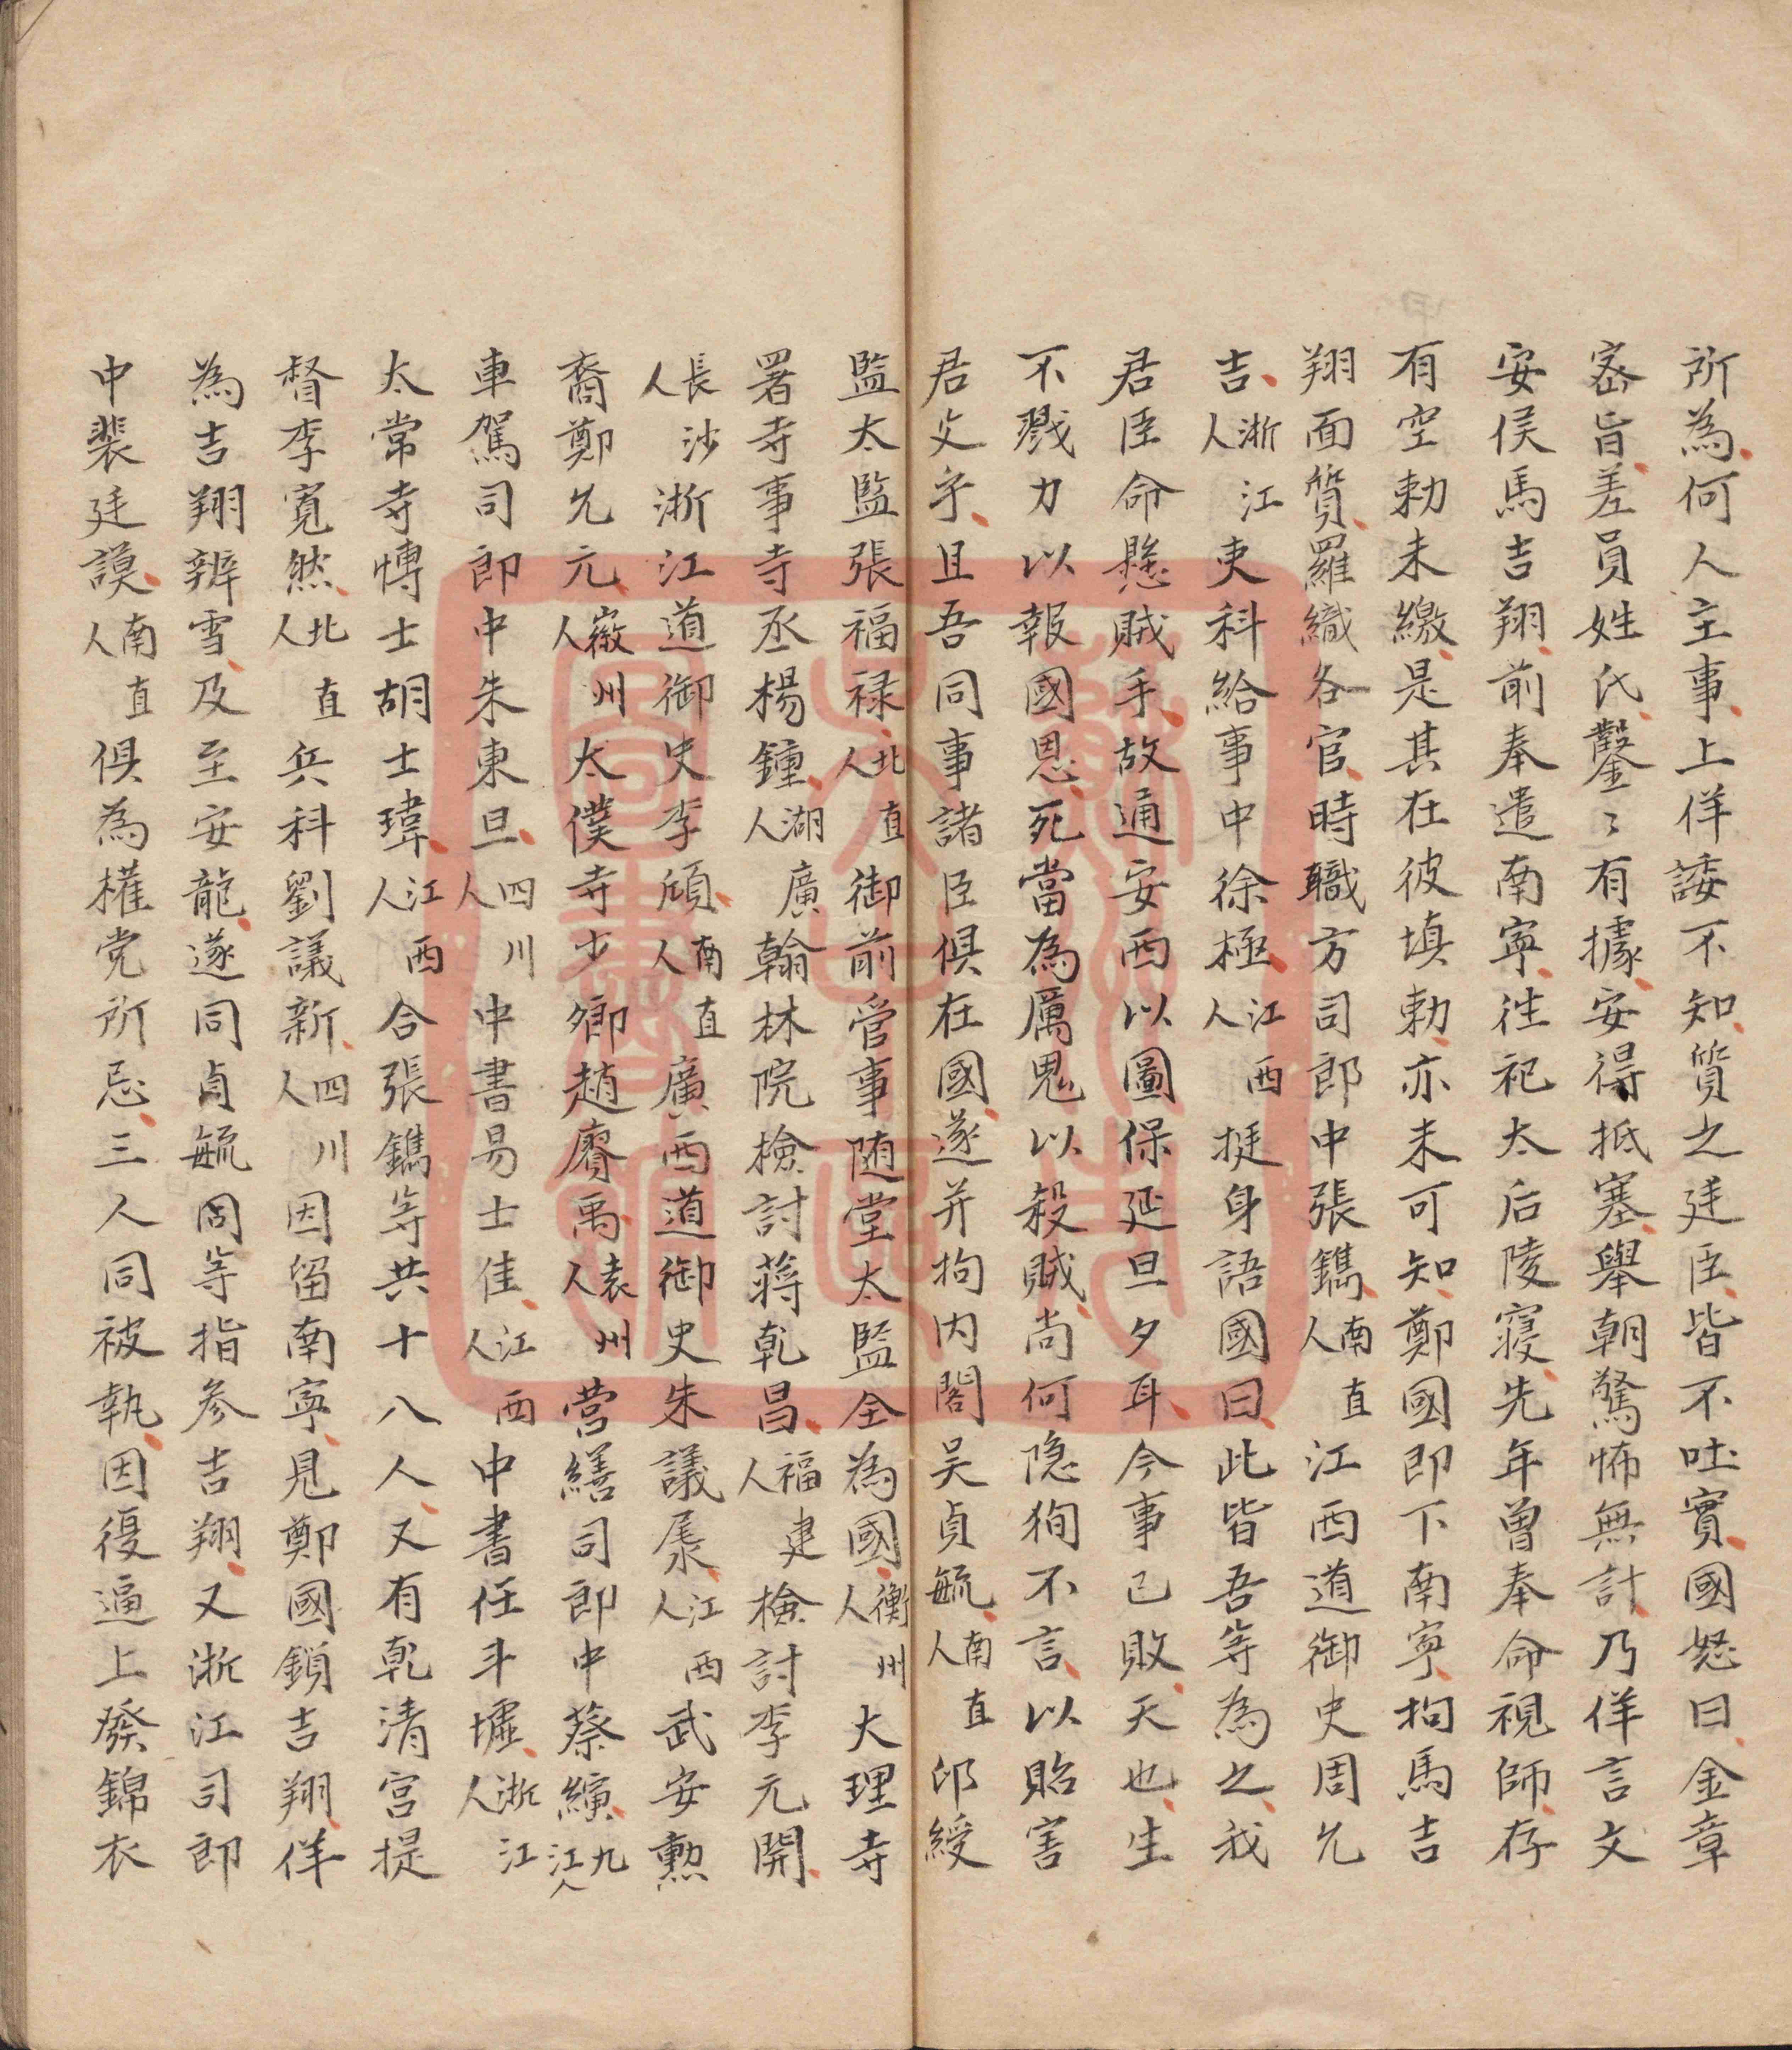 所為何人主事上佯諉不知質之廷臣皆不吐實國怒曰金章
密旨差員姓氏鑿〻有據安得抵塞舉朝驚怖無計乃佯言文
安侯馬吉翔前奉遣南寧徃祀太后陵寢先年曾奉命視師存
有空勅未繳是其在彼填勅亦未可知鄭國即下南寧拘馬吉
翔面質羅織各官時職方司郎中張鐫南直人江西道御史周允
吉浙江人吏科給事中徐極江西人挺身語國曰此皆吾等為之我
君臣命懸賊手故通安西以圖保延旦夕耳今事已敗天也生
不戮力以報國恩死當為厲鬼以殺賊尚何隐狥不言以貽害
君父乎且吾同事諸臣俱在國遂并拘内閣吴貞毓南直人印綬
監太監張福禄北直人御前管事随堂太監全為國衡州人大理寺
署寺事寺丞楊鍾湖廣人翰林院檢討蔣乾昌福建人檢討李元開
長沙人浙江道御史李頎南直人廣西道御史朱議㞧江西人武安勲
裔鄭允元徽州人太僕寺少卿趙賡禹袁州人營繕司郎中蔡縯九江人
車駕司郎中朱東旦四川人中書易士佳江西人中書任斗墟浙江人
太常寺愽士胡士瑋江西人合張鐫等共十八人又有乾清宫提
督李寬然北直人兵科劉議新四川人因留南寧見鄭國鎖吉翔佯
為吉翔辨雪及至安龍遂同貞毓同等指參吉翔又浙江司郎
中裴廷謨南直人俱為權党所忌三人同被執因復逼上發錦衣